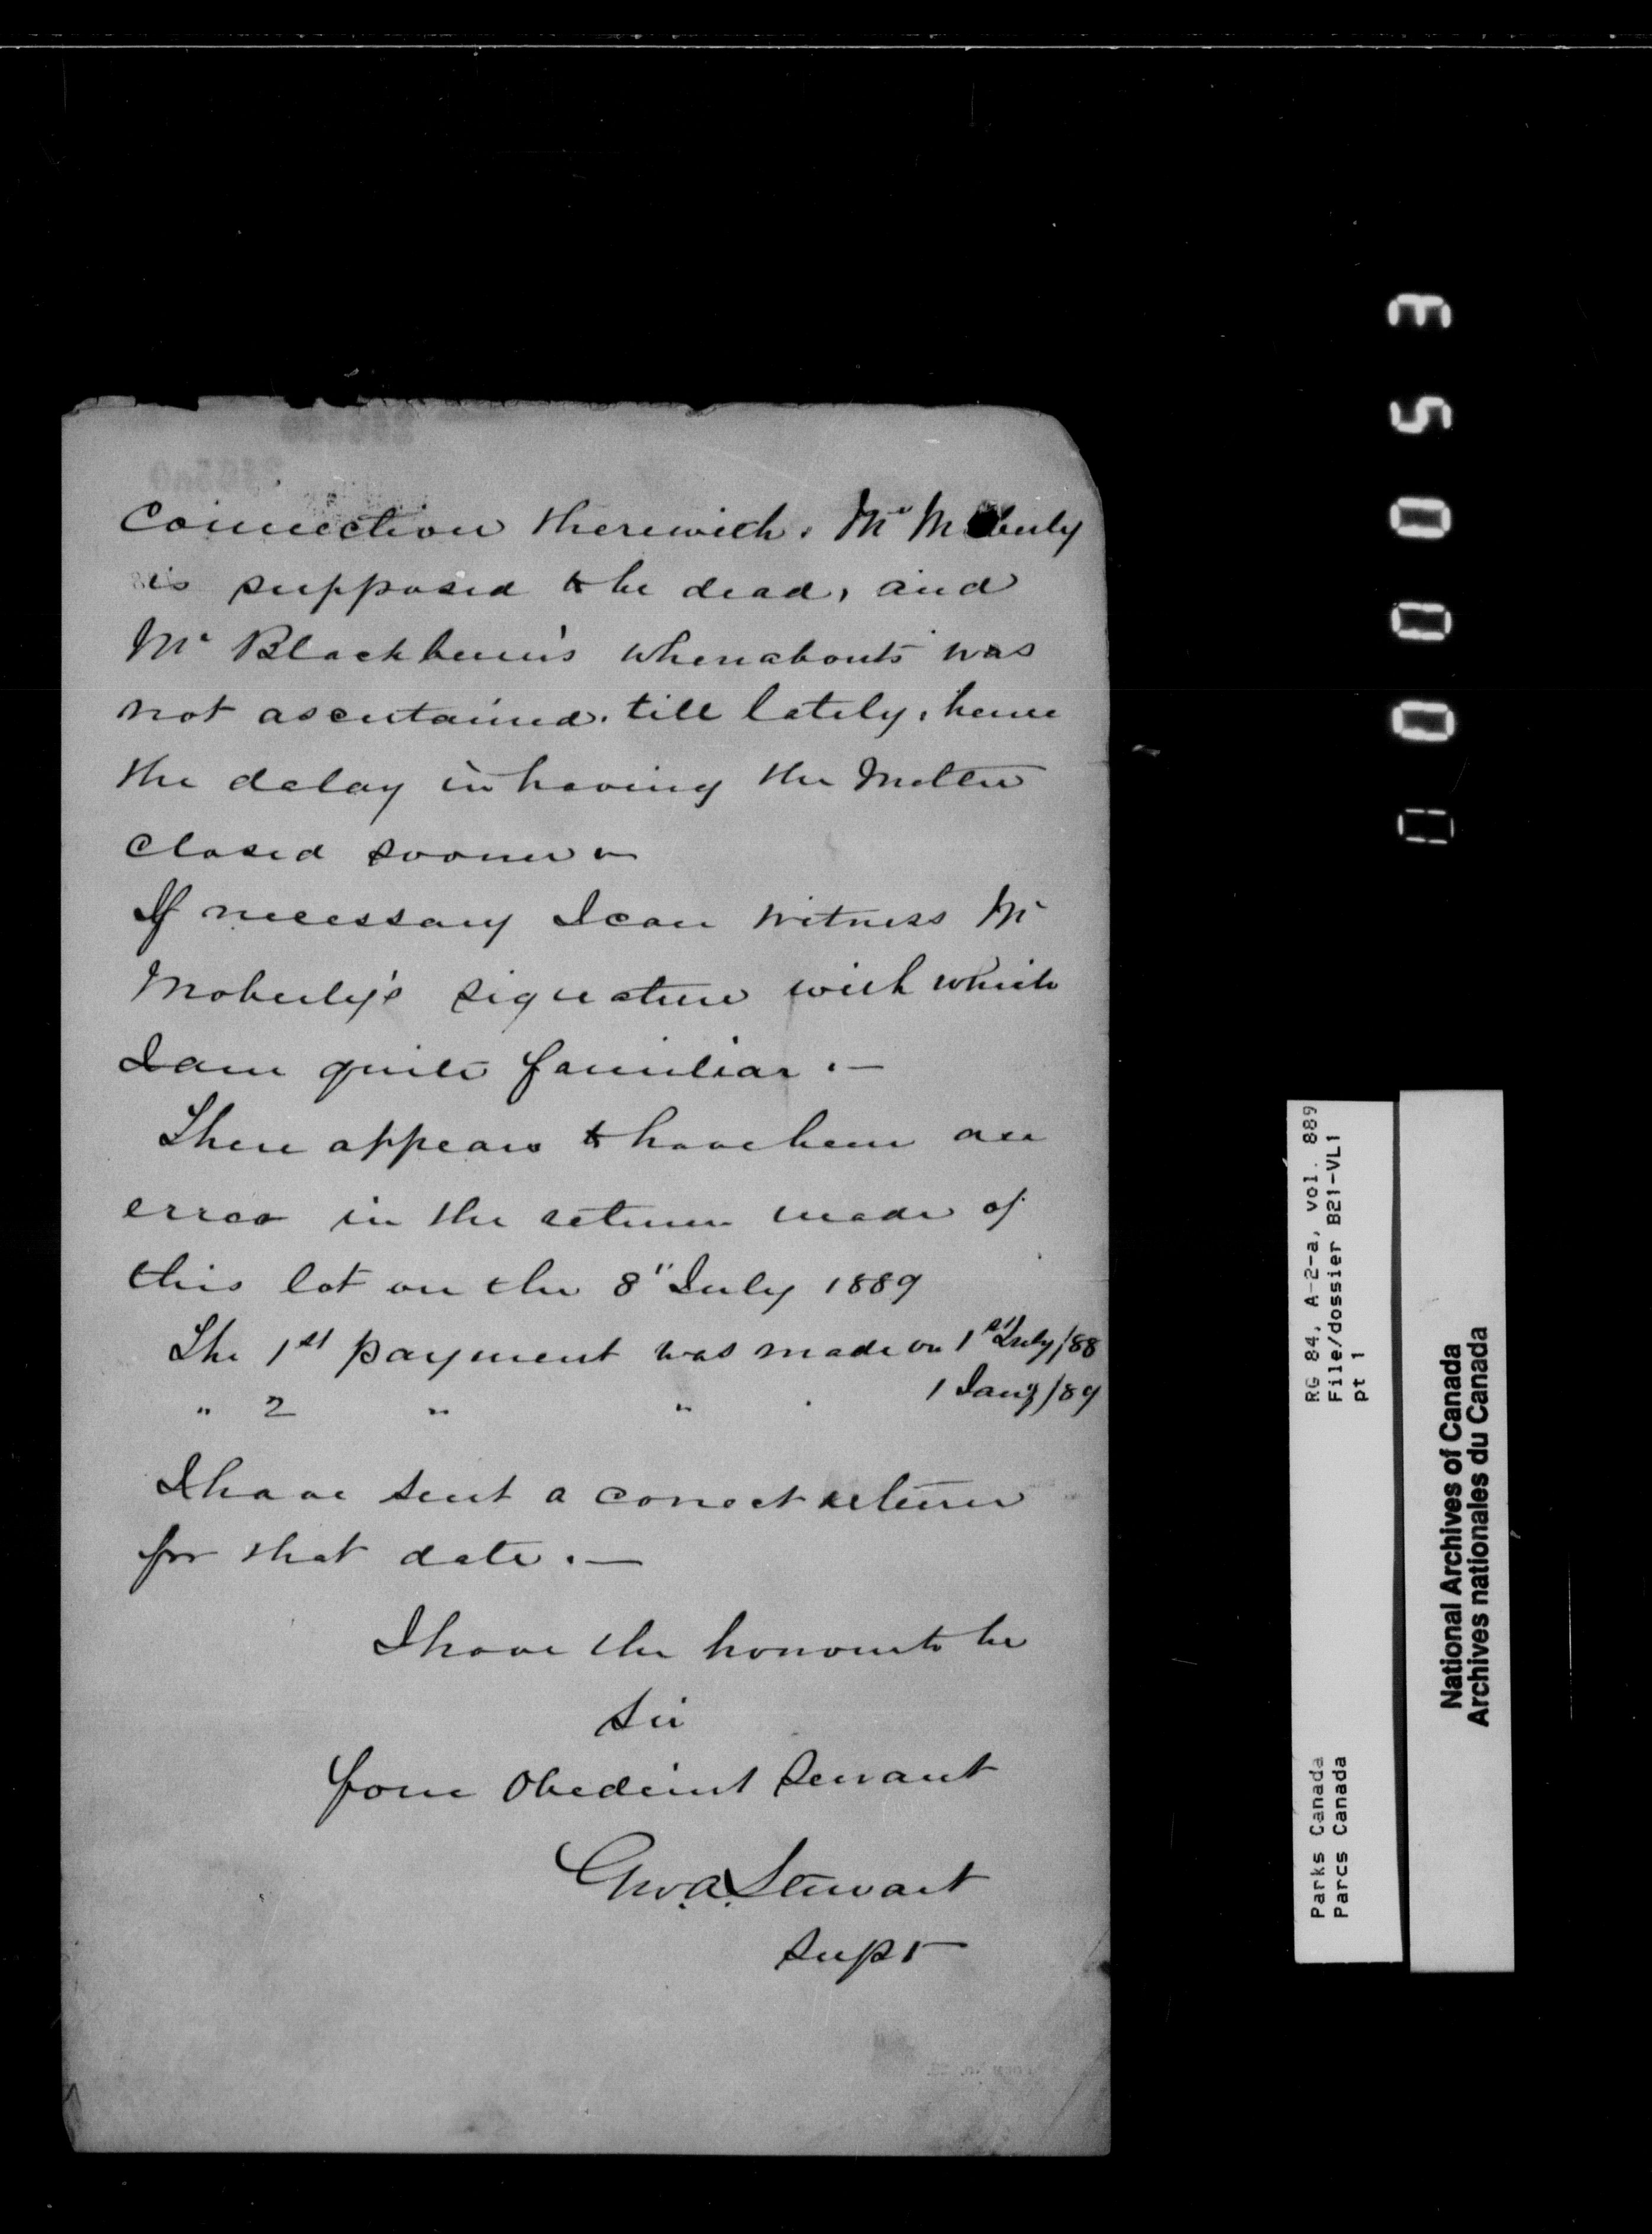 Connection therewith. Mr Moberly
is supposed to be dead, and
Mr Blackburn's whereabouts was
not ascertained. till lately, hence
the delay in having the Matter
Closed sooner
If necessary I can witness Mr
Moberly's signature with which
I am quite familiar.—
There appears to have been an
error in the return made of
this lot on the 8" July 1889
The 1st payment was made on 1st July/88
" 2 " " 1 Jany/89
I have sent a correct return
for that date.—
I have the honour to be
Sir
Your Obedient Servant
Geo. A. Stewart
Supt
000053
RG 84, A-2-a, vol. 889
File/dossier B21-VL1
pt 1
Parks Canada
Parcs Canada
National Archives of Canada
Archives nationales du Canada